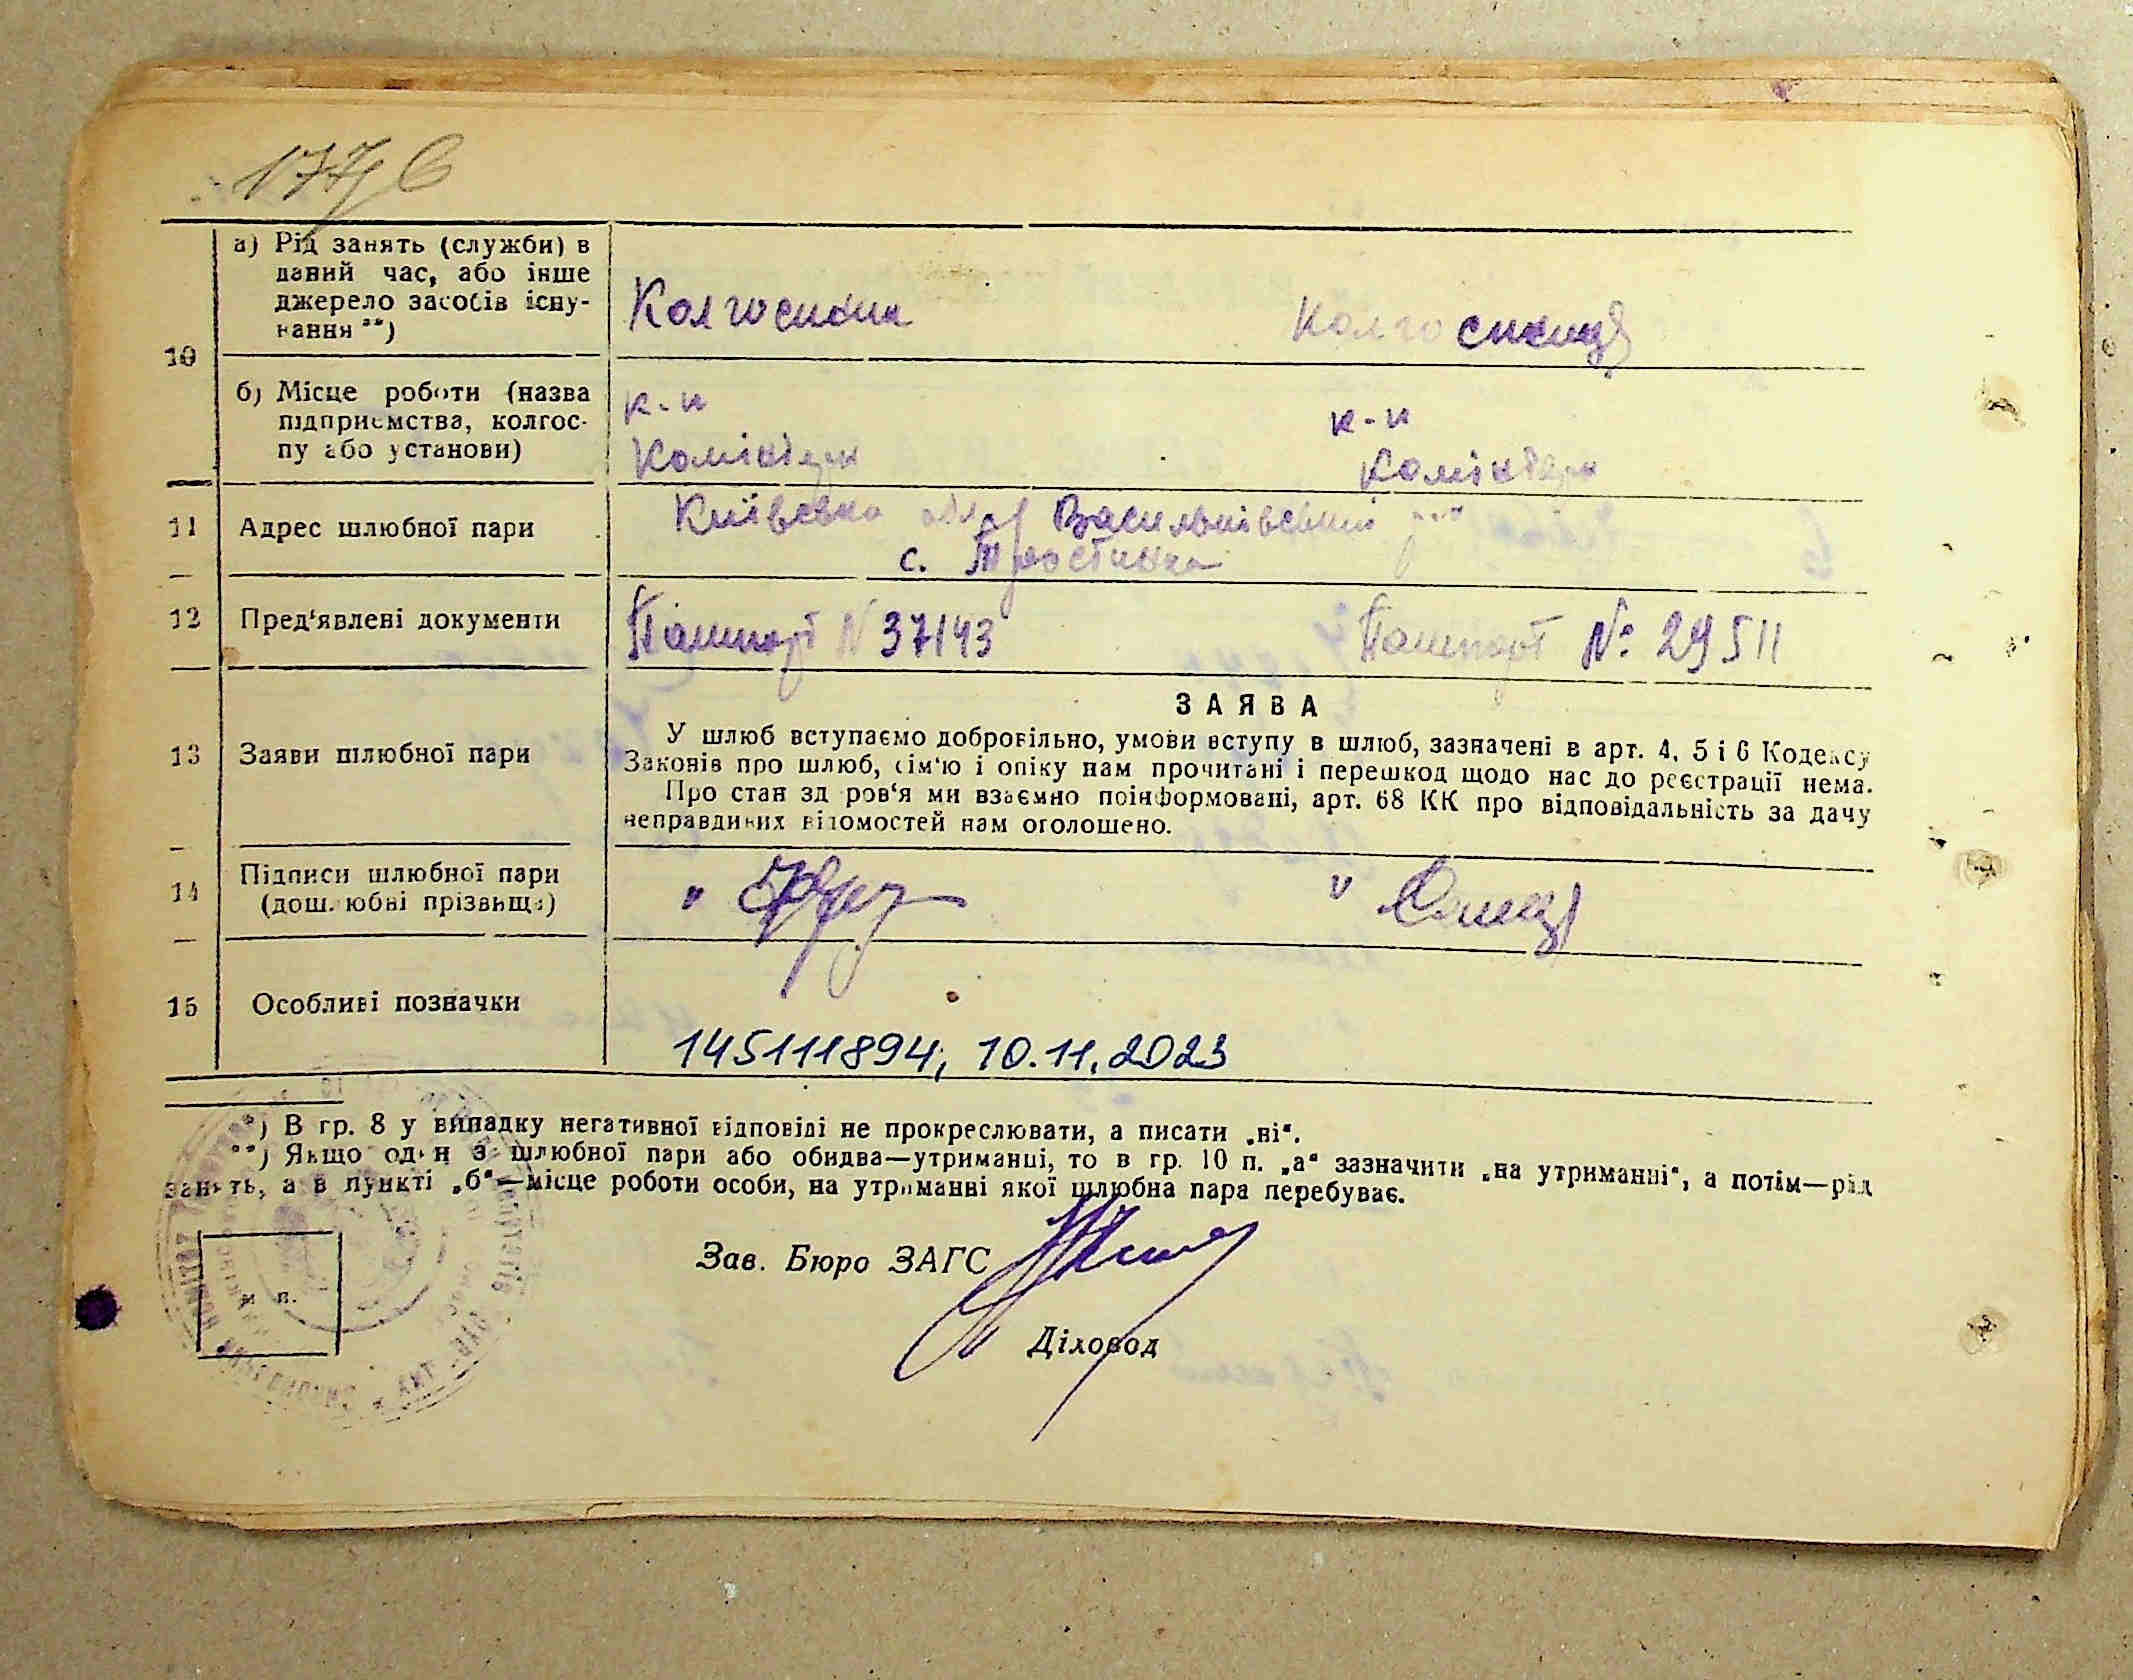 а) Рід занять (служби) в
даний час, або інше
джерело засобів існу-
вання **)
Колгоспник Колгоспниця
10
б) Місце роботи (назва
підприємства, колгос-
пу або установи)
к-п к-п
Комінтерн Комінтерн
11 Адрес шлюбної пари
Київська обл Васильківський
с. Тростинка
12 Пред'явлені документи Пашпорт N 37143 Пашпорт № 29511
ЗАЯВА
13 Заяви шлюбної пари
У шлюб вступаємо добровільно, умови вступу в шлюб, зазначені в арт. 4, 5 і 6 Кодексу
Законів про шлюб, сім'ю і опіку нам прочитані і перешкод щодо нас до реєстрації нема.
Про стан здоров'я ми взаємно поінформовані, арт. 68 КК про відповідальність за дачу
неправдивих відомостей нам оголошено.
14 Підписи шлюбної пари
(дошлюбні прізвища)
15 Особливі позначки
145111894, 10.11.2023
*) В гр. 8 у випадку негативної відповіді не прокреслювати, а писати „ні“.
**) Якщо один з шлюбної пари або обидва—утриманці, то в гр. 10 п. „а“ зазначити „на утриманні“, а потім—рід
занять, а в пункті „б“—місце роботи особи, на утриманні якої шлюбна пара перебуває.
Зав. Бюро ЗАГС
м. п.
Діловод